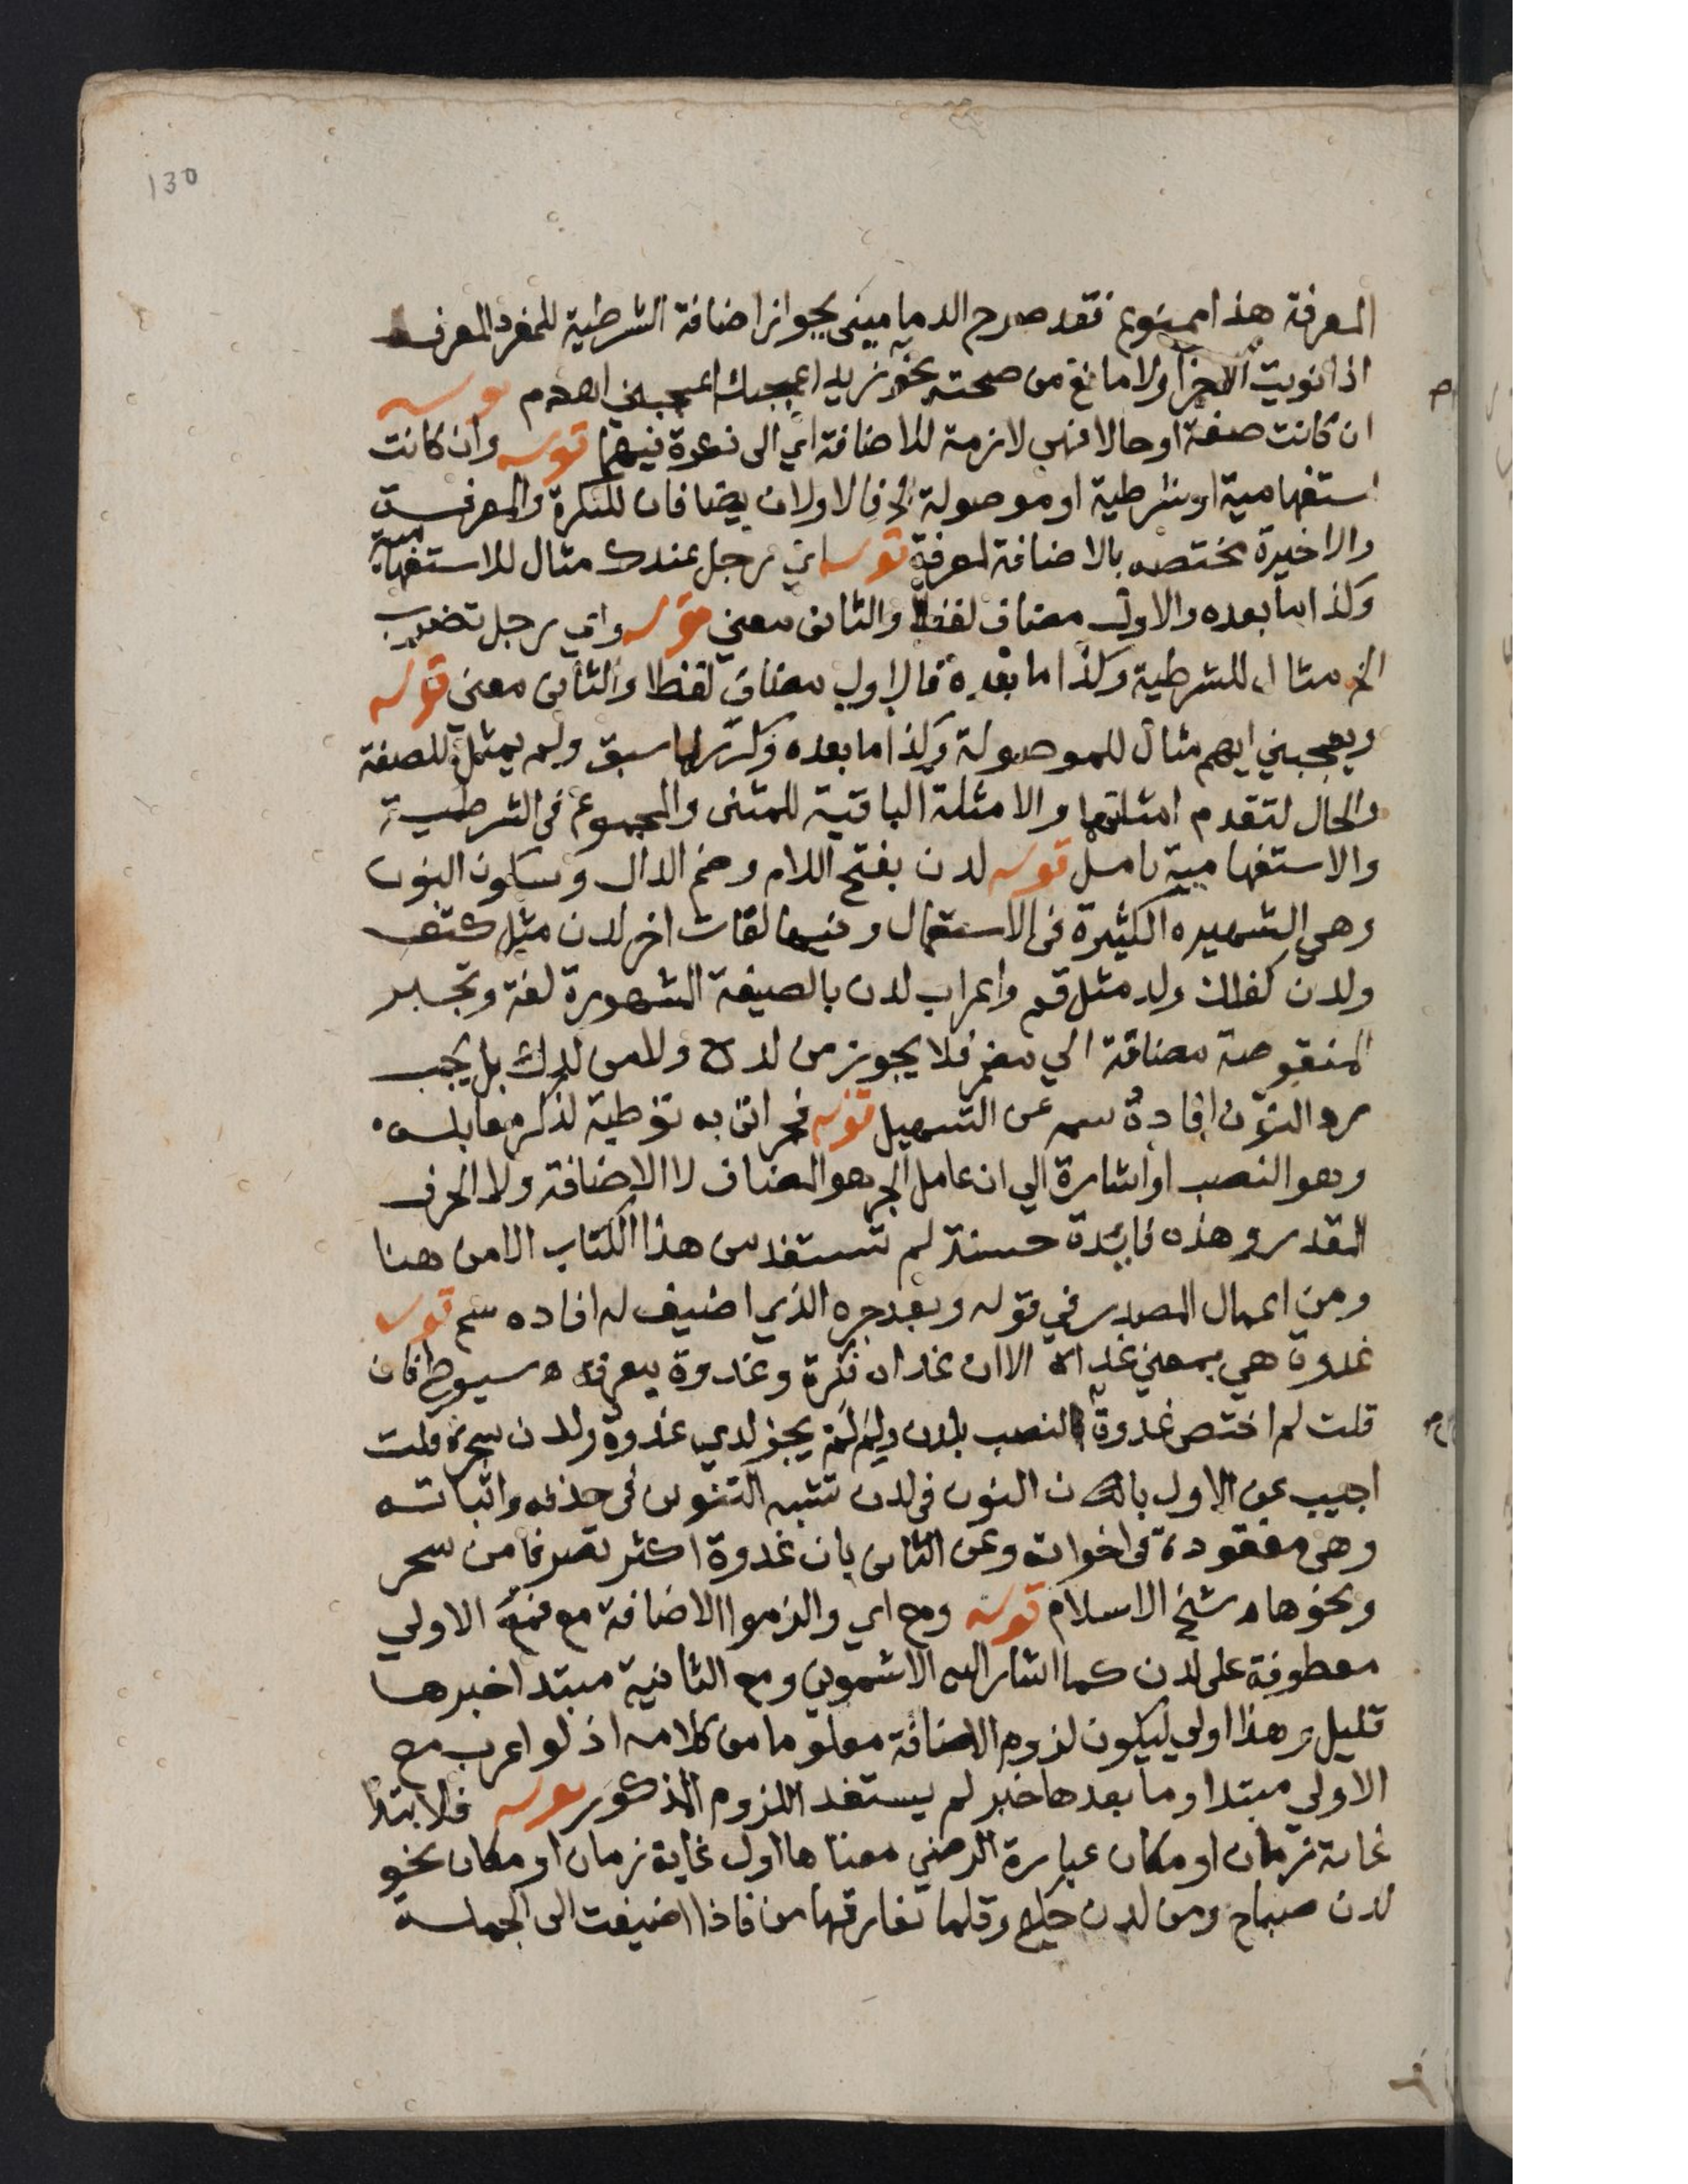 130
المعرفة هذا ممنوع فقد صرح الدماميني بجواز اضافة الشرطية للمفرد المعرف
اذا نويت الاجزا ولا مانع من صحته نحو اي زيد اعجبك اعجبني اهدم قوله
ان كانت صفة او حالا فهي لازمة للاضافة اي الى نكرة فيهما قوله وان كانت
استفهامية او شرطية او موصولة الخ فالاولان يضافان للنكرة والمعرفة
والاخيرة مختصه بالاضافة لمعرفة قوله اي رجل عندك مثال للاستفهامية
وكذا ما بعده والاول مضاف لفظا والثاني معني قوله واي رجل تضرب
الخ مثال للشرطية وكذا ما بعده فالاول مضاف لفظا والثاني معنى قوله
ويعجبني ايهم مثال للموصولة وكذا ما بعده وكرر لما سبق ولم يمثل للصفة
والحال لتقدم امثلتهما والامثلة الباقية للمثنى والمجموع في الشرطية
والاستفهامية تامل قوله لدن بفتح اللام وضم الدال وسكون النون
وهي الشهيره الكثيرة في الاستعمال وفيها لغات اخر لدن مثل كتف
ولدن كفلت ولد مثل قم واعراب لدن بالصيغة المشهورة لغة وتجبر
المنقوصة مضافة الي مضمر فلا يجوز من لده ولا من لدك بل يجب
رد النون افاده سم عن التسهيل قوله فجر اتى به توطية لذكر مقابله
وهو النصب او اشارة الي ان عامل الجر هو المضاف لا الاضافة ولا الحرف
المقدر وهذه فايدة حسنة لم تستفد من هذا الكتاب الا من هنا
ومن اعمال المصدر في قوله وبعد جره الذي اضيف له افاده سم قوله
غدوة هي بمعني غداة الا ان غداة نكرة وغدوة معرفة ه سيوطي فان
قلت لم اختص غدوة بالنصب بلدن ولم لم يجز لدي غدوة ولدن سحرة قلت
اجيب عن الاول بان النون في لدن تشبه التنوين في حذفه واثباته
وهي مفقودة في اخواته وعن الثاني بان غدوة اكثر تصرفا من سحر
ونحوها ه شيخ الاسلام قوله ومع اي والزموا الاضافة مع فمع الاولي
معطوفة على لدن كما اشار اليه الاشموني ومع الثانية مبتدا خبرها
قليل وهذا اولي ليكون لزوم الاضافة معلوما من كلامه اذ لو اعرب مع
الاولي مبتدا وما بعدها خبر لم يستفد اللزوم المذكور قوله فلابتدا
غاية زمان او مكان عبارة الرضي معناها اول غاية زمان او مكان نحو
لدن صباح ومن لدن حكيم وقلما تفارقها من فاذا اضيفت الى الجملة